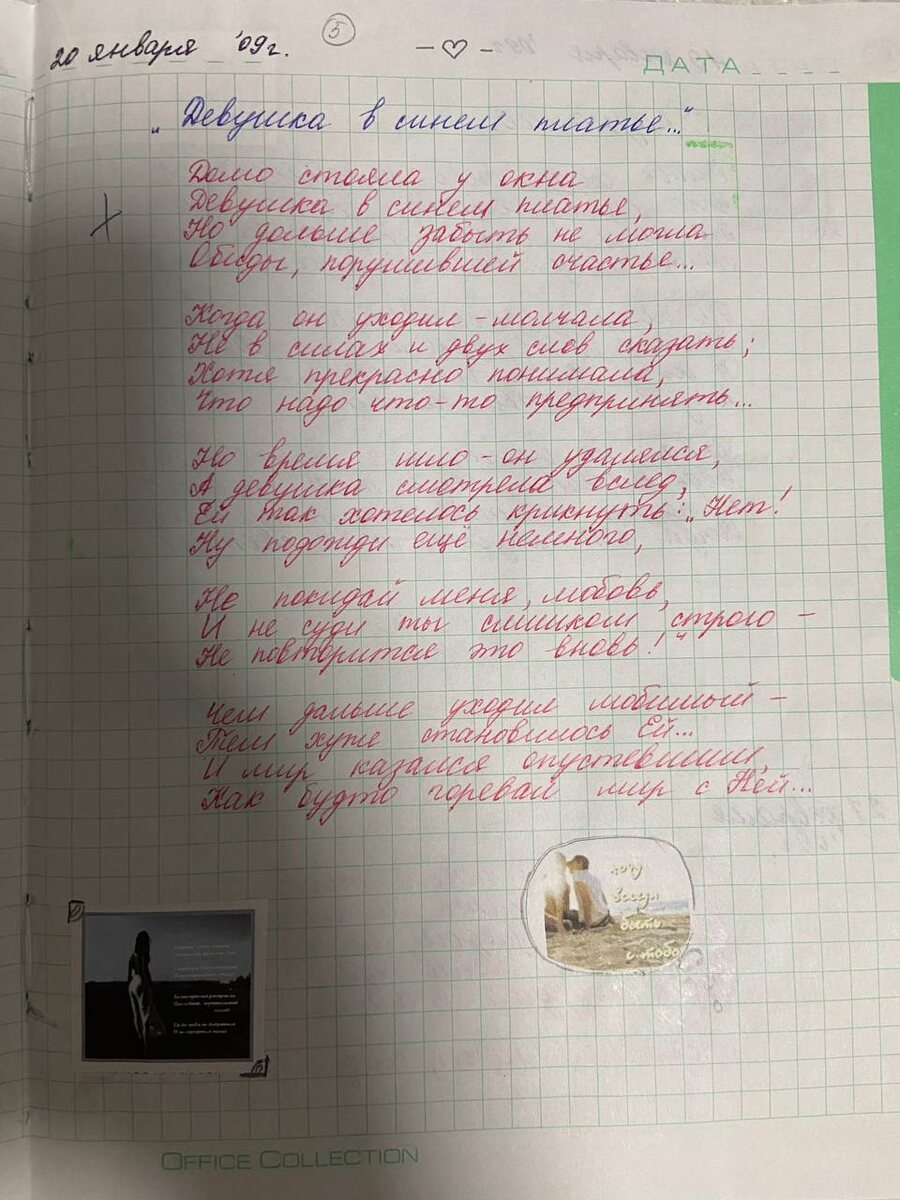 20 января '09г.
5
ДАТА
„Девушка в синем платье..."
Долго стояла у окна
Девушка в синем платье,
Но дольше забыть не могла
Обиды, порушившей счастье...
Когда он уходил - молчала,
Не в силах и двух слов сказать;
Хотя прекрасно понимала,
Что надо что-то предпринять...
Но время шло - он удалялся,
А девушка смотрела вслед,
Ей так хотелось крикнуть: „Нет!
Ну подожди ещё немного,
Не покидай меня, любовь,
И не суди ты слишком строго -
Не повторится это вновь!"
Чем дальше уходил любимый -
Тем хуже становилось Ей...
И мир казался опустевшим,
Как будто горевал мир с Ней...
хочу
всегда
быть
с тобо
OFFICE COLLECTION